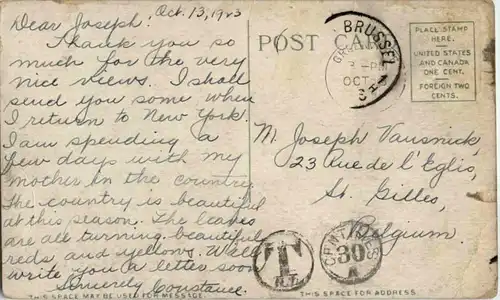 Dear Joseph! Oct. 13, 1923
Thank you so
much for the very
nice views. I shall
send you some when
I return to New York.
I am spending a
few days with my
mother in the country.
The country is beautiful
at this season. The leaves
are all turning beautiful
reds, and yellows. Will
write you a letter soon
Sincerely Constance.
THIS SPACE MAY BE USED FOR MESSAGE.
POST CARD
BRUSSEL
3-PM
OCT
3
PLACE STAMP
HERE.
UNITED STATES
AND CANADA
ONE CENT.
FOREIGN TWO
CENTS.
M. Joseph Vausnick
23 rue de l'Eglis
St. Gilles,
Belgium
T
N.Y.
CENTIMES
30
A
THIS SPACE FOR ADDRESS.